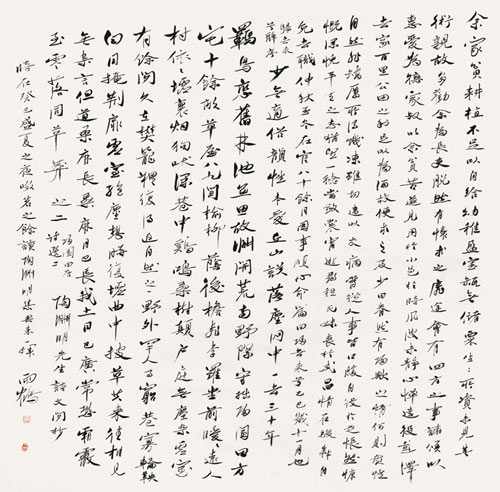 余家貧耕植不足以自給幼稚盈室瓶無儲粟生生所資未見其
術親故多勸余為長吏脫然有懷求之靡途會有四方之事諸侯以
惠愛為德家叔以余貧苦遂見用於小邑於時風波未靜心憚遠役彭澤
去家百里公田之利足以為酒故便求之及少日眷然有歸歟之情何則質性
自然非矯厲所得飢凍雖切違己交病嘗從人事皆口腹自役於是悵然慷
慨深愧平生之志猶望一稔當斂裳宵逝尋程氏妹喪於武昌情在駿奔自
免去職仲秋至冬在官八十餘日因事順心命篇曰歸去來兮乙巳歲十一月也
歸去來
兮辭序
少無適俗韻性本愛丘山誤落塵網中一去三十年
羈鳥戀舊林池魚思故淵開荒南野際守拙歸園田方
宅十餘畝草屋八九間榆柳蔭後檐桃李羅堂前曖曖遠人
村依依墟裏煙狗吠深巷中雞鳴桑樹顛戶庭無塵雜虛室
有餘閒久在樊籠裡復得返自然之一野外罕人事窮巷寡輪鞅
白日掩荊扉虛室絕塵想時復墟曲中披草共來往相見
無雜言但道桑麻長桑麻日已長我土日已廣常恐霜霰
至零落同草莽之二
歸園田居
詩選二
陶淵明先生詩文閒抄
時在癸巳盛夏之夜之餘讀陶淵明集興來一揮 雨鶴